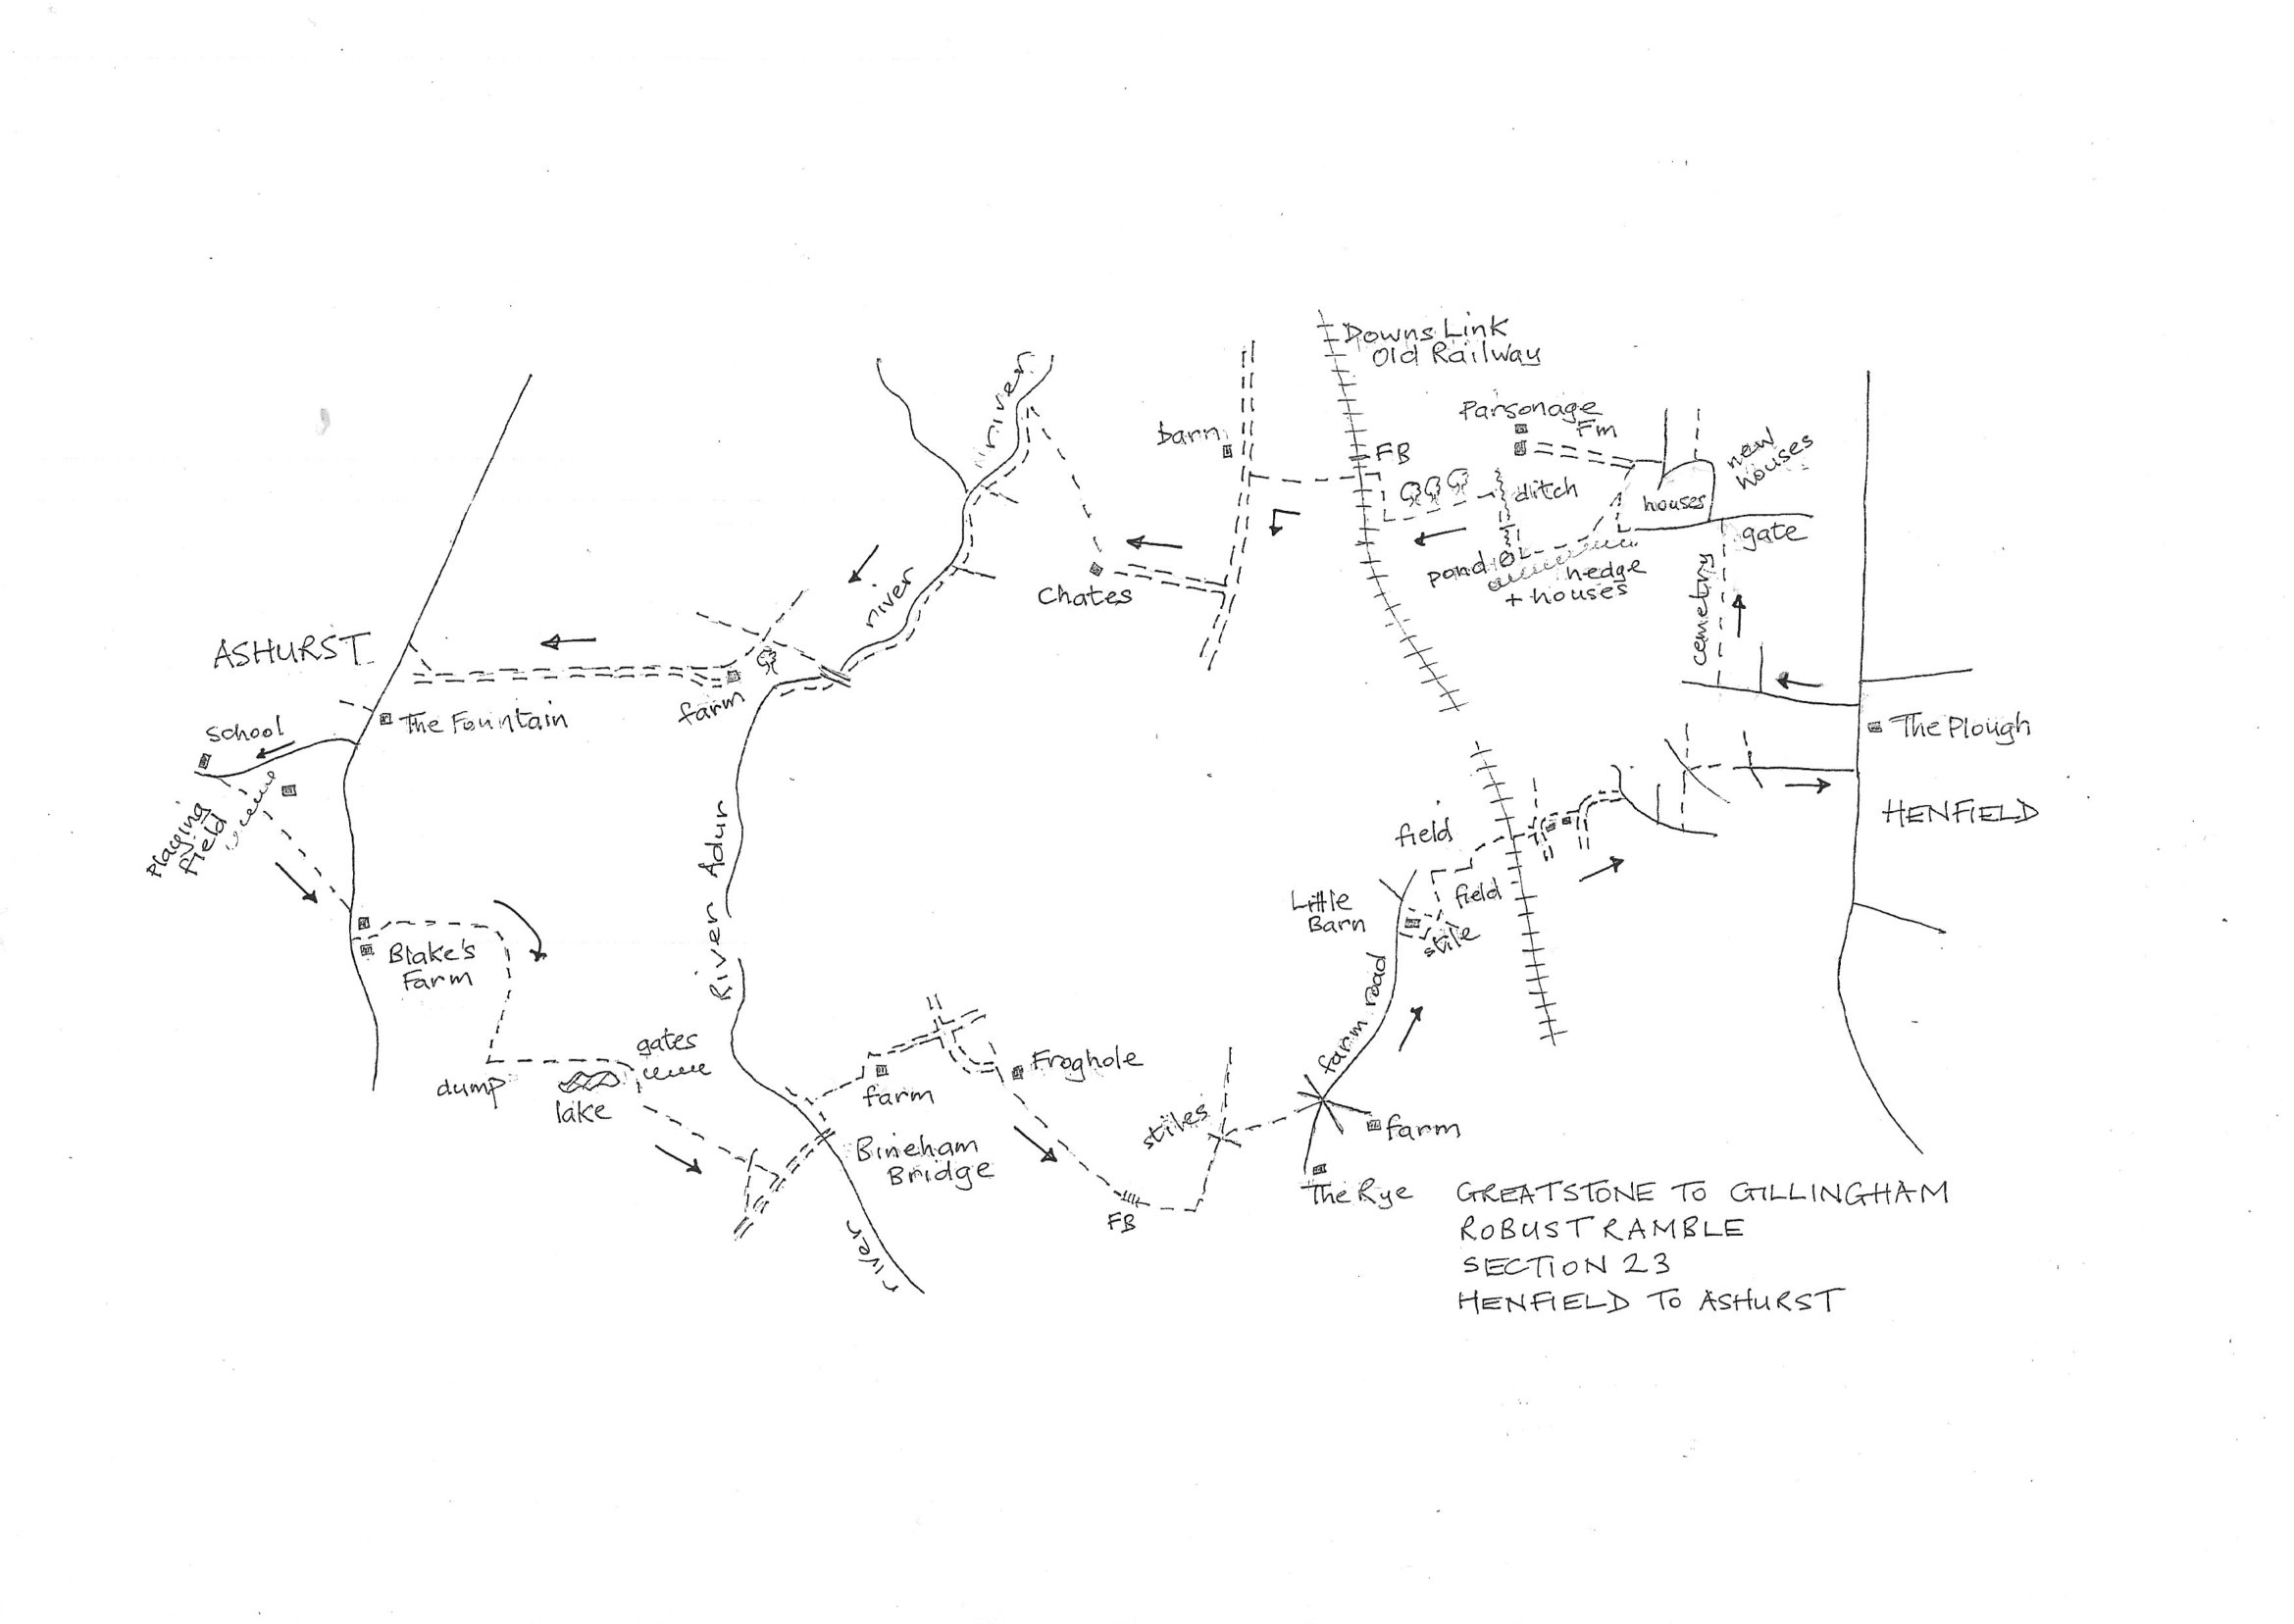 Downs Link
Old Railway
river
Parsonage
Fm
barn
FB
new
houses
ditch
houses
gate
pond
hedge
+ houses
Chates
river
cemetry
ASHURST
farm
The Fountain
School
The Plough
Playing
field
HENFIELD
field
field
Little
Barn
stile
River Adur
Blake's
Farm
farm road
gates
dump
lake
Froghole
farm
stiles
farm
Bineham
Bridge
The Rye
FB
river
GREATSTONE TO GILLINGHAM
ROBUST RAMBLE
SECTION 23
HENFIELD TO ASHURST